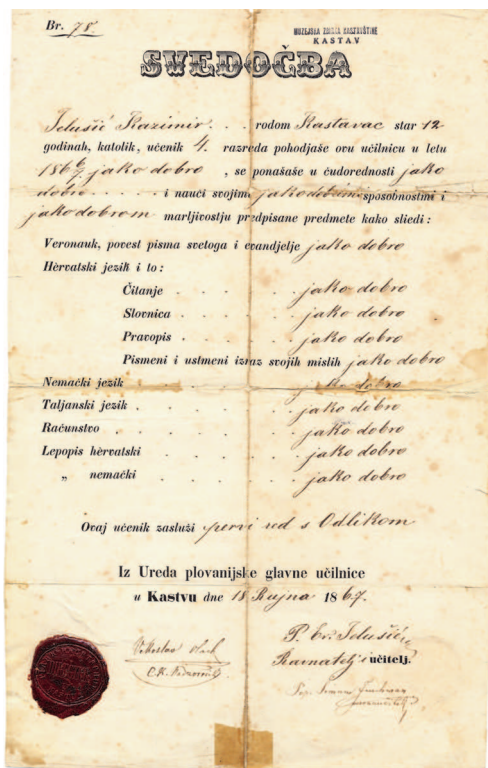 Br. 78.
MUZEJSKA ZBIRKA KASTAVŠTINE
KASTAV
SVEDOČBA
Jelušić Kazimir rodom Kastavac star 12
godinah, katolik, učenik 4. razreda pohodjaše ovu učilnicu u letu
186 6/7. jako dobro, se ponašaše u ćudorednosti jako
dobro i nauči svojimi jakodobrimi sposobnostimi i
jakodobrom marljivostju predpisane predmete kako sliedi:
Veronauk, povest pisma svetoga i evandjelje jako dobro
Hèrvatski jezik i to:
Čitanje . . . . jako dobro
Slovnica . . . . jako dobro
Pravopis . . . . jako dobro
Pismeni i ustmeni izraz svojih mislih jako dobro
Nemački jezik . . . . jako dobro
Taljanski jezik . . . . jako dobro
Računstvo . . . . jako dobro
Lepopis hèrvatski . . . . jako dobro
„ nemački . . . . jako dobro
Ovaj učenik zasluži pervi red s Odlikom
Iz Ureda plovanijske glavne učilnice
u Kastvu dne 18 Rujna 1867.
Vekoslav
P. Jelušić
Ravnatelj i učitelj.